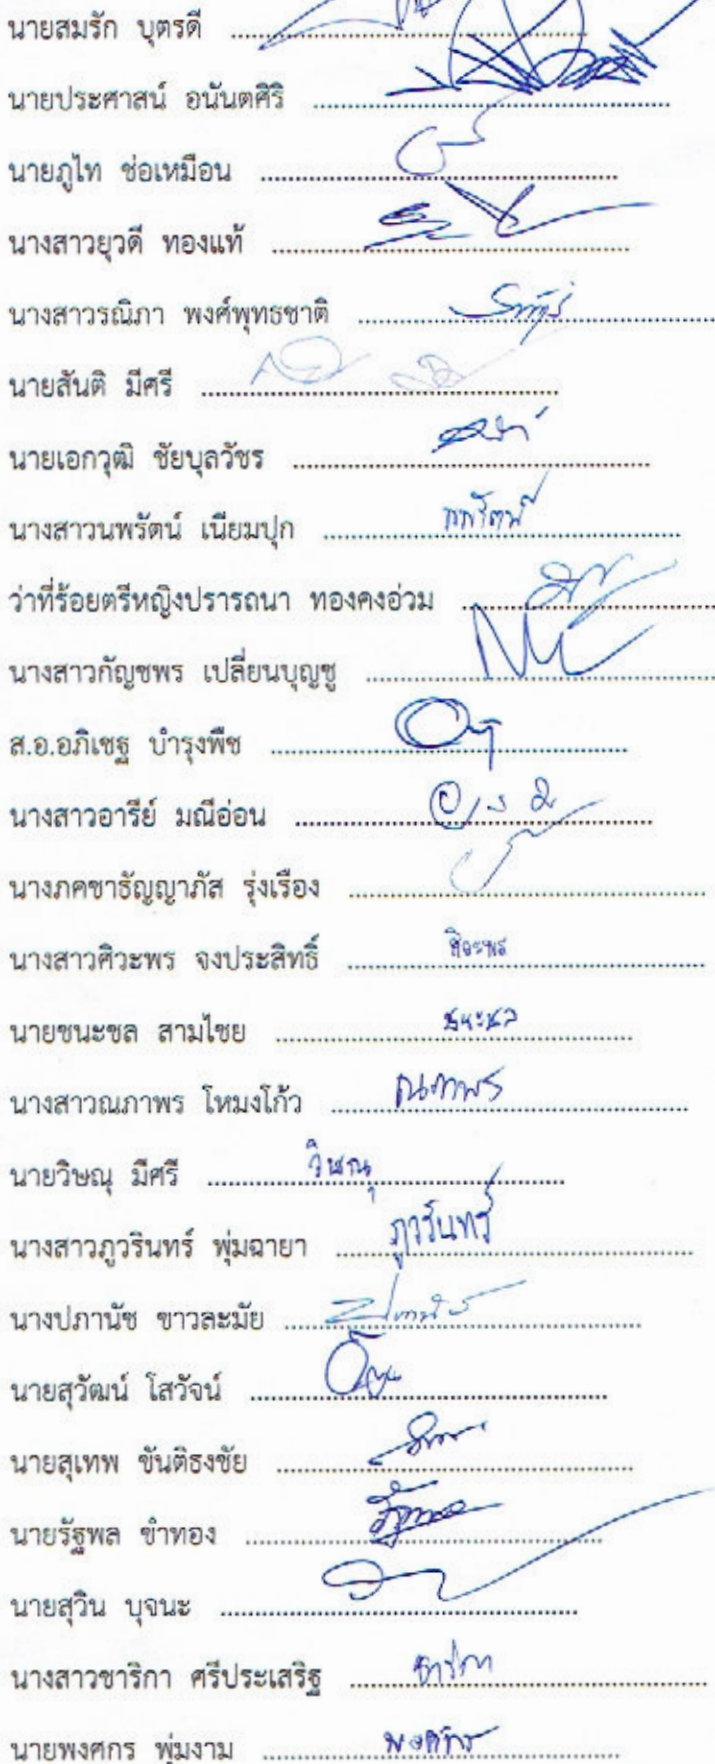 นายสมรัก บุตรดี ........................
นายประศาสน์ อนันตศิริ ........................
นายภูไท ช่อเหมือน ........................
นางสาวยุวดี ทองแท้ ........................
นางสาวรณิภา พงศ์พุทธชาติ ........................
นายสันติ มีศรี ........................
นายเอกวุฒิ ชัยบุลวัชร ........................
นางสาวนพรัตน์ เนียมปุก ........................ นพรัตน์
ว่าที่ร้อยตรีหญิงปรารถนา ทองคงอ่วม ........................
นางสาวกัญชพร เปลี่ยนบุญชู ........................
ส.อ.อภิเชฐ บำรุงพืช ........................
นางสาวอารีย์ มณีอ่อน ........................
นางภคชาธัญญาภัส รุ่งเรือง ........................
นางสาวศิวะพร จงประสิทธิ์ ........................ ศิวะพร
นายชนะชล สามไชย ........................ ชนะชล
นางสาวณภาพร โหมงโก้ว ........................ ณภาพร
นายวิษณุ มีศรี ........................ วิษณุ
นางสาวภูวรินทร์ พุ่มฉายา ........................ ภูวรินทร์
นางปภานัช ขาวละมัย ........................
นายสุวัฒน์ โสวัจน์ ........................
นายสุเทพ ขันติธงชัย ........................
นายรัฐพล ขำทอง ........................
นายสุวิน บุจนะ ........................
นางสาวชาริกา ศรีประเสริฐ ........................ ชาริกา
นายพงศกร พุ่มงาม ........................ พงศกร